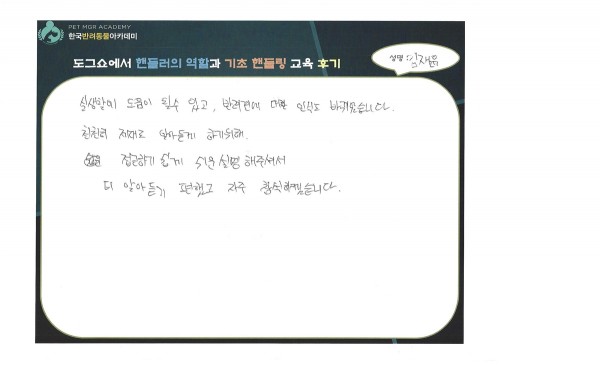 PET MGR ACADEMY
한국반려동물아카데미
도그쇼에서 핸들러의 역할과 기초 핸들링 교육 후기
성명
실생활에 도움이 될수 있고, 반려견에 대한 인식도 바뀌었습니다.
천천히 제대로 알아듣게 하기위해.
접근하기 쉽게 설명해주셔서
더 알아듣기 편했고 자주